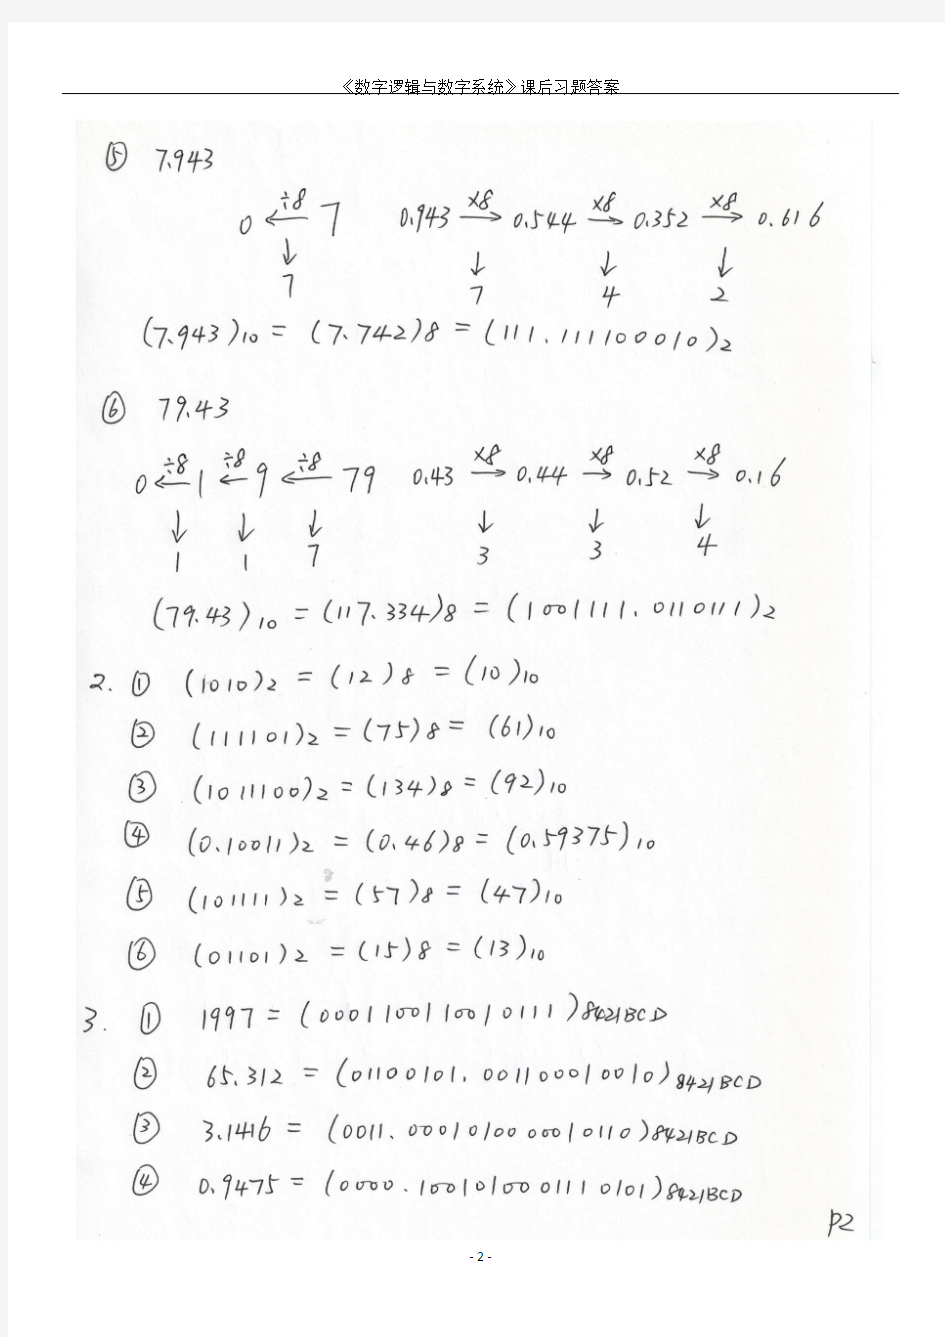 《数字逻辑与数字系统》课后习题答案
⑤ 7.943
÷8 ×8 ×8 ×8
0 ← 7 0.943 → 0.544 → 0.352 → 0.616
↓ ↓ ↓ ↓
7 7 4 2
(7.943)10 = (7.742)8 = (111.111100010)2
⑥ 79.43
÷8 ÷8 ÷8 ×8 ×8 ×8
0 ← 1 ← 9 ← 79 0.43 → 0.44 → 0.52 → 0.16
↓ ↓ ↓ ↓ ↓ ↓
1 1 7 3 3 4
(79.43)10 = (117.334)8 = (1001111.0110111)2
2. ① (1010)2 = (12)8 = (10)10
② (111101)2 = (75)8 = (61)10
③ (1011100)2 = (134)8 = (92)10
④ (0.10011)2 = (0.46)8 = (0.59375)10
⑤ (101111)2 = (57)8 = (47)10
⑥ (01101)2 = (15)8 = (13)10
3. ① 1997 = (0001100110010111)8421BCD
② 65.312 = (01100101.001100010010)8421BCD
③ 3.1416 = (0011.0001010000010110)8421BCD
④ 0.9475 = (0000.1001010001110101)8421BCD
P2
- 2 -